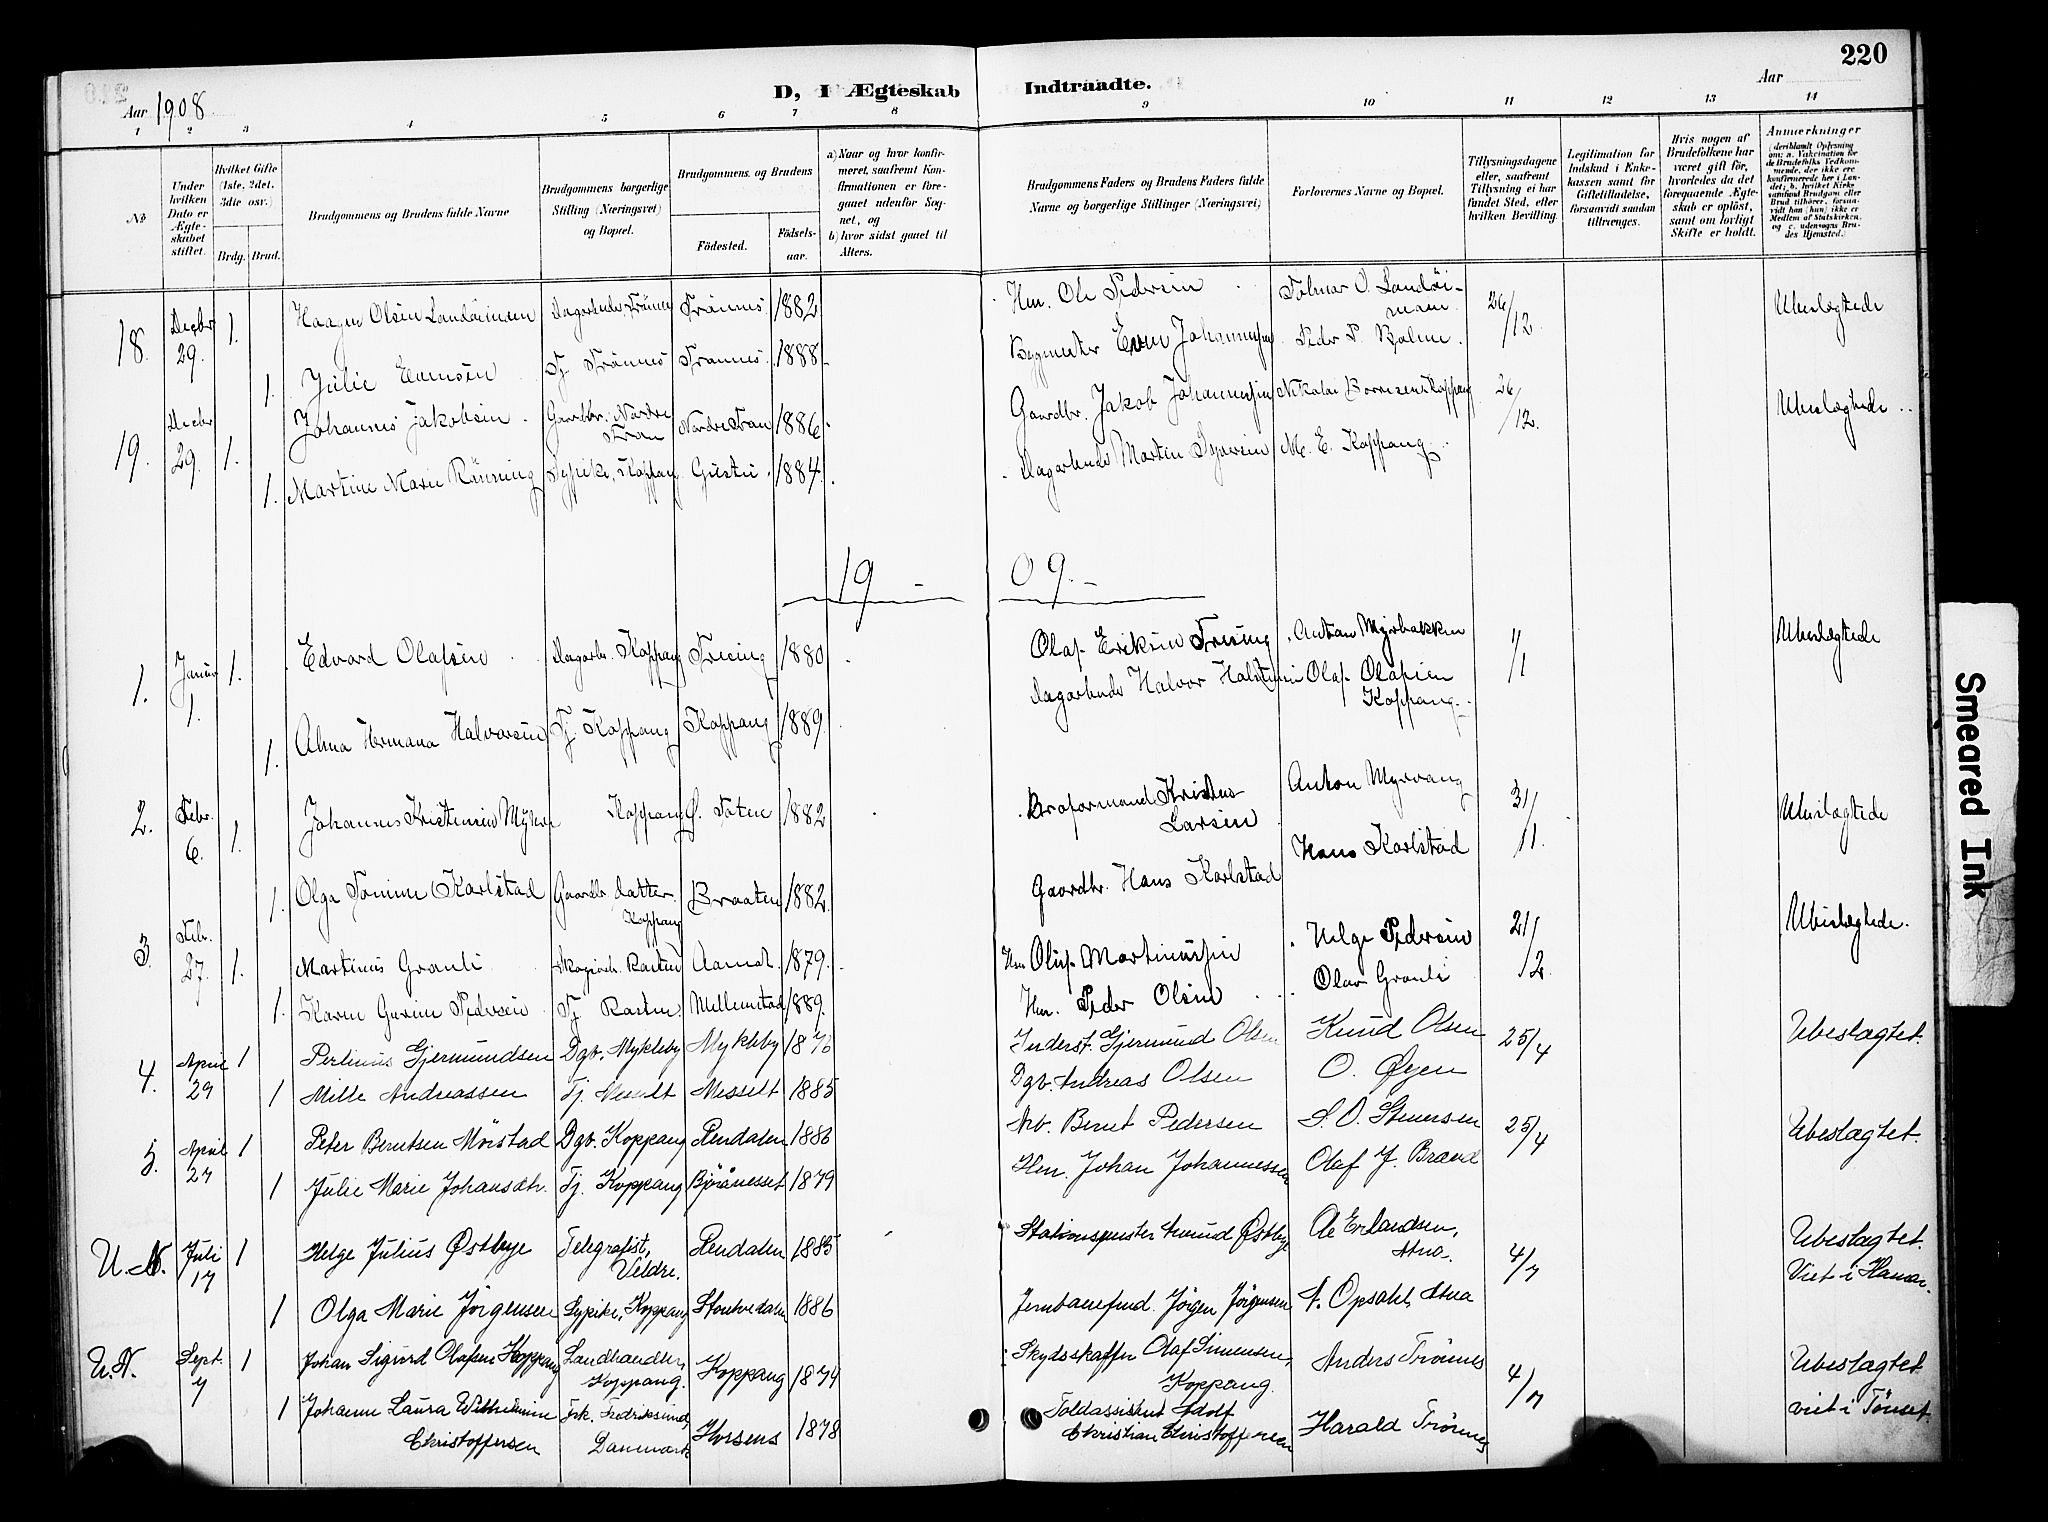 220
Aar 1908
D, I Ægteskab Indtraadte.
Aar
1 2 3 4 5 6 7 8 9 10 11 12 13 14
No
Under hvilken Dato er Ægteskabet stiftet.
Hvilket Gifte (1ste, 2det, 3die osv.)
Brdg. Brud.
Brudgommens og Brudens fulde Navne
Brudgommens borgerlige Stilling (Næringsvei) og Bopæl.
Brudgommens og Brudens
Födested. Födselsaar.
a) Naar og hvor konfirmeret, saafremt Konfirmationen er foregaaet udenfor Sognet, og
b) hvor sidst gaaet til Alters.
Brudgommens Faders og Brudens Faders fulde Navne og borgerlige Stillinger (Næringsvei)
Forlovernes Navne og Bopæl.
Tillysningsdagene eller, saafremt Tillysning ei har fundet Sted, efter hvilken Bevilling.
Legitimation for Indskud i Enkekassen samt for Giftetilladelse, forsaavidt saadan tiltrænges.
Hvis nogen af Brudefolkene har været gift før, hvorledes da det foregaaende Ægteskab er opløst, samt om lovligt Skifte er holdt.
Anmerkninger
18. Decbr 29. 1. Haagen Olsen Landöiensen Dagarbeider Trönnes Trönnes 1882 Hm. Ole Pedersen 26/12. Ubeslægtede
1. Julie Evensen Tj. Trönnes Trønnes. 1888. Bygmester Even Johannessen Peder P. Bolme.
19. Decbr 29. 1. Johannes Jakobsen Gaardbr. Nordre Tran Nordre Tran 1886. Gaardbr. Jakob Johannessen Nikolai Koppang 26/12. Ubeslægtede
1. Martine Marie Rönning Sypike, Koppang Gustu 1884. Dagarbeider Martin Syversen M. E. Koppang
19 - 09. -
1. Januar 1. 1. Edvard Olafsen Dagarb. Koppang Trøeing 1880 Olaf Eriksen Trøeing Anton Myrbakken 1/1 Ubeslægtede
1. Alma Hermana Halvorsen Tj. Koppang Koppang 1889. Dagarbeider Halvor Halstensen Olaf Olafsen Koppang.
2. Febr. 6. 1. Johannes Kristensen Koppang Ö. Toten 1882 Broformand Kristen Larsen Anton Myrvang 31/1. Ubeslægtede
1. Olga Karlstad Gaardbr. datter Koppang Braaten 1882 Gaardbr. Hans Karlstad Hans Karlstad
3. Febr. 27. 1. Martinus Granli Rasten Aamot. 1879. Hm Oluf Martinussen Helge Pedersen 21/2 Ubeslægtede.
1. Karen Gurine Pedersen Tj. Rasten Mellemstad 1889. Hm. Peder Olsen Olav Granli
4. April 29 1 Perlinus Gjermundsen Dgb. Mykleby Mykleby 1876 Inderst. Gjermund Olsen Knud Olsen 25/4 Ubeslagtet.
1 Mille Andreassen Tj. Messelt Messelt 1885 Dgb. Andreas Olsen O. Øyen
5. April 27 1 Peter Berntsen Mörstad Dgb. Koppang Rendalen 1886 Arb. Bernt Pedersen S. O. Stenersen 25/4 Ubeslagtet.
1 Julie Marie Johansdtr. Tj. Koppang Björänesset 1879 Hm. Johan Johannessen Olaf J. Brænd
U.N. Juli 17 1 Helge Julius Østbye Telegrafist, Veldre. Rendalen 1885 Stationsmester Amund Østbye Ole Erlandsen, Atna. 4/7 Ubeslagtet. Viet i Hamar.
1 Olga Marie Jörgensen Sypike, Koppang 1886 Jernbanefmd. Jörgen Jörgensen A. Opsahl, Atna
U.N. Sept. 7 1 Johan Sigurd Olafsen Koppang Landhandler, Koppang. Koppang 1874 Skydsskaffer Olaf Simensen, Koppang. Anders Trönnes 4/7 Ubeslagtet. viet i Tönset.
1 Johanne Laura Wilhelmine Christoffersen Frk. Fredrikssund, Danmark Horsens 1878 Toldassistent Adolf Christian Christoffersen Harald Trönnes
Smeared Ink